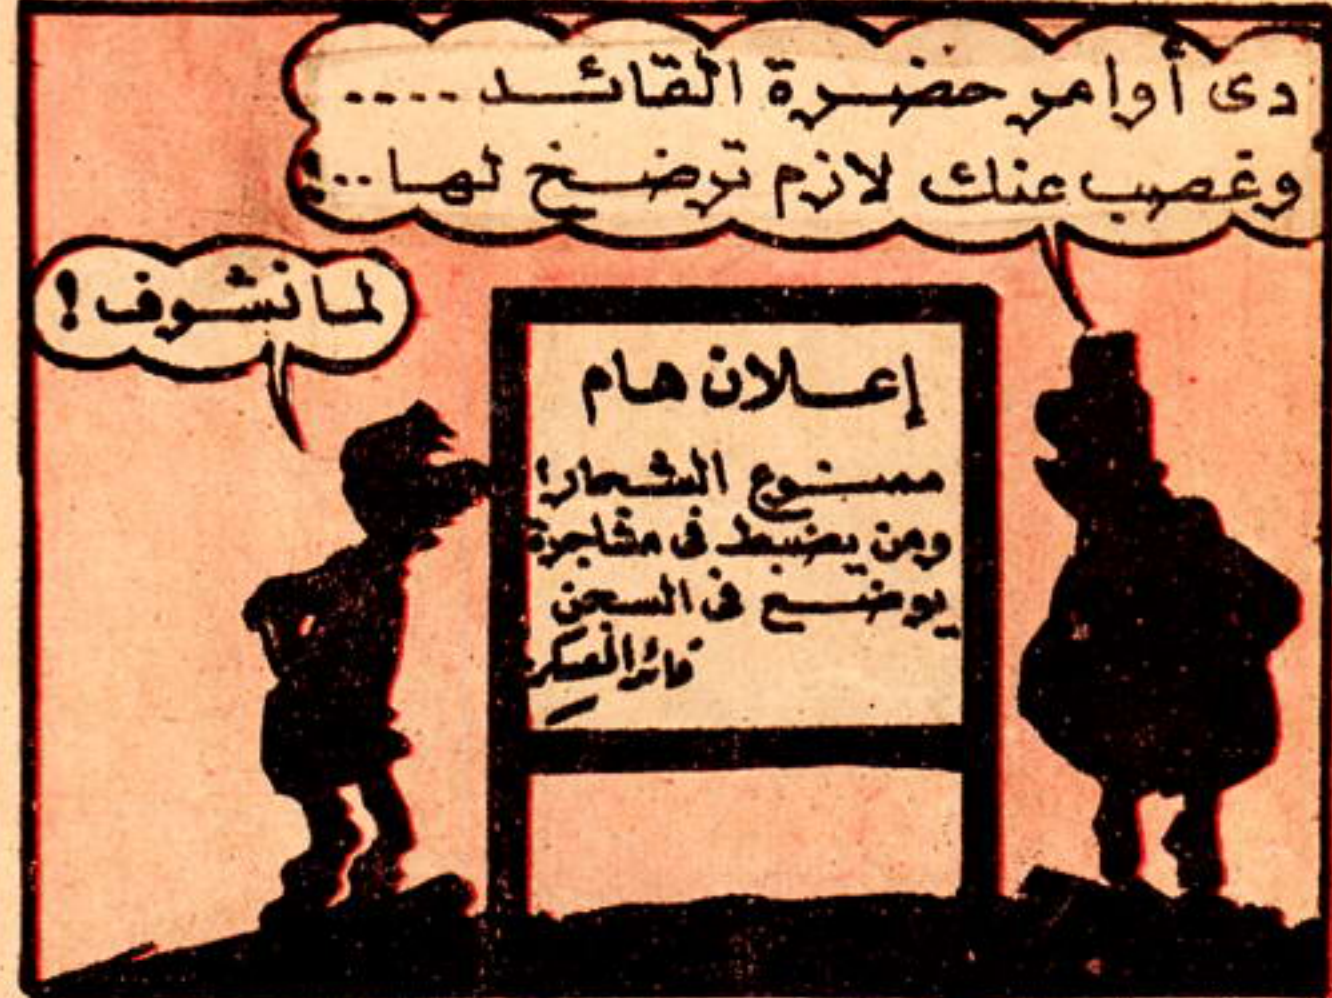 دى أوامر حضرة القائد....
وغصب عنك لازم ترضخ لها..!
لما نشوف!
إعلان هام
ممنوع الشجار!
ومن يضبط فى مشاجرة
يوضع فى السجن
قائد المعسكر